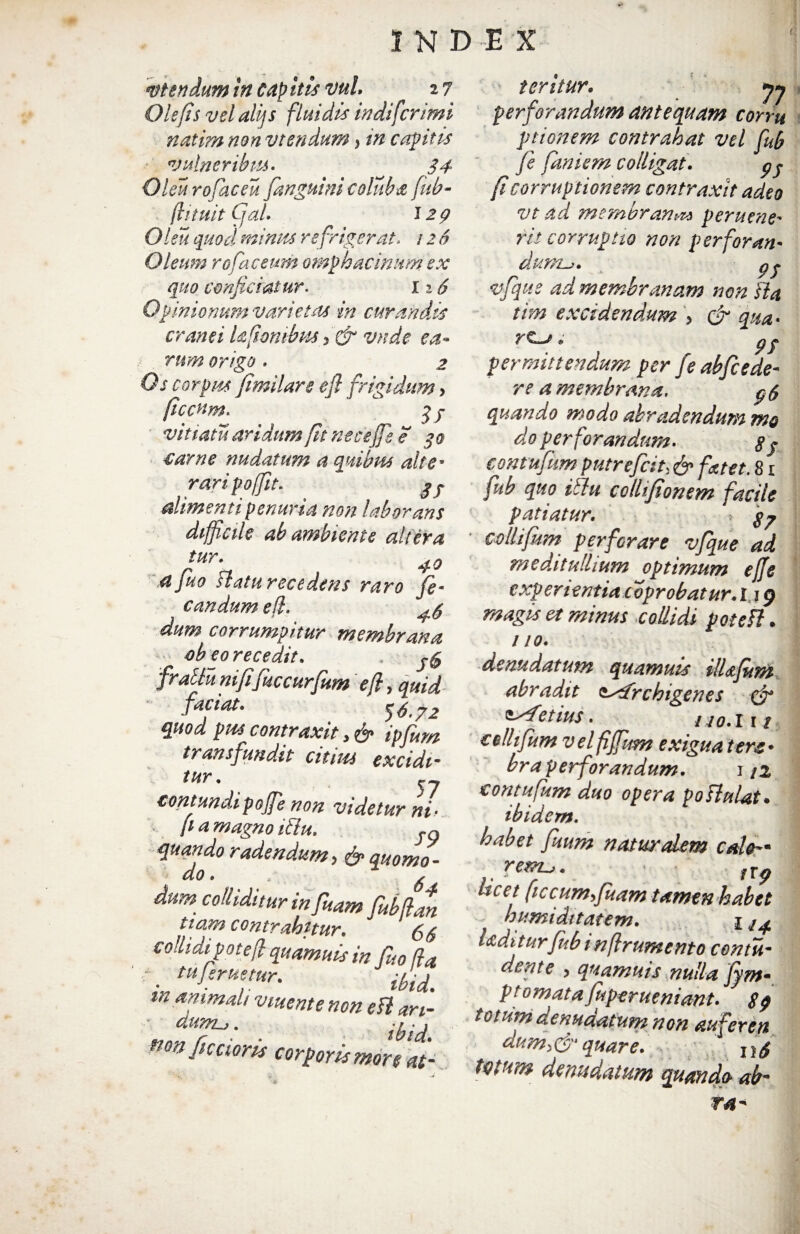 INDEX
vtendum in capitis vul. 27
Olefis vel alijs fluidis indiſcrimi
natim non vtendum, in capitis
vulneribus. 34
Oleū roſaceū ſanguini columbæ ſub-
ſtituit Gal. 129
Oleū quod minus refrigerat. 126
Oleum roſaceum omphacinum ex
quo conficiatur. 126
Opinionum varietas in curandis
cranei læſionibus, & vnde ea-
rum origo. 2
Os corpus ſimilare eſt frigidum,
ſiccum. 35
vitiatū aridum ſit neceſſe ē 30
carne nudatum a quibus alte-
rari poſſit. 35
alimenti penuria non laborans
difficile ab ambiente altera
tur. 40
a ſuo ſtatu recedens raro ſe-
candum eſt. 46
dum corrumpitur membrana
ob eo recedit. 56
fractu niſi ſuccurſum eſt, quid
faciat. 56.72
quod pus contraxit, & ipſum
transfundit citius excidi-
tur. 57
contundi poſſe non videtur ni-
ſi a magno ictu. 59
quando radendum, & quomo-
do. 64
dum colliditur in ſuam ſubſtan
tiam contrahitur. 66
collidi poteſt quamuis in ſuo ſta
tu ſeruetur. ibid.
in animali viuente non eſt ari-
dum. ibid.
non ſiccioris corporis more at-
teritur. 77
perforandum antequam corru
ptionem contrahat vel ſub
ſe ſaniem colligat. 95
ſi corruptionem contraxit adeo
vt ad membranas peruene-
rit corruptio non perforan-
dum. 95
vſque ad membranam non ſta
tim excidendum, & qua-
re. 95
permittendum per ſe abſcede-
re a membrana. 96
quando modo abradendum mo
do perforandum. 85
contuſum putreſcit, & fætet. 81
ſub quo ictu colliſionem facile
patiatur. 87
colliſum perforare vſque ad
meditullium optimum eſſe
experientia cōprobatur. 119
magis et minus collidi poteſt.
110.
denudatum quamuis illæſum
abradit Archigenes &
Aetius. 110.111
colliſum vel fiſſum exigua tere-
bra perforandum. 112
contuſum duo opera poſtulat.
ibidem.
habet ſuum naturalem calo-
rem. 119
licet ſiccum, ſuam tamen habet
humiditatem. 114
læditur ſub inſtrumento contū-
dente, quamuis nulla ſym-
ptomata ſuperueniant. 89
totum denudatum non auferen
dum, & quare. 116
totum denudatum quando ab-
ra-